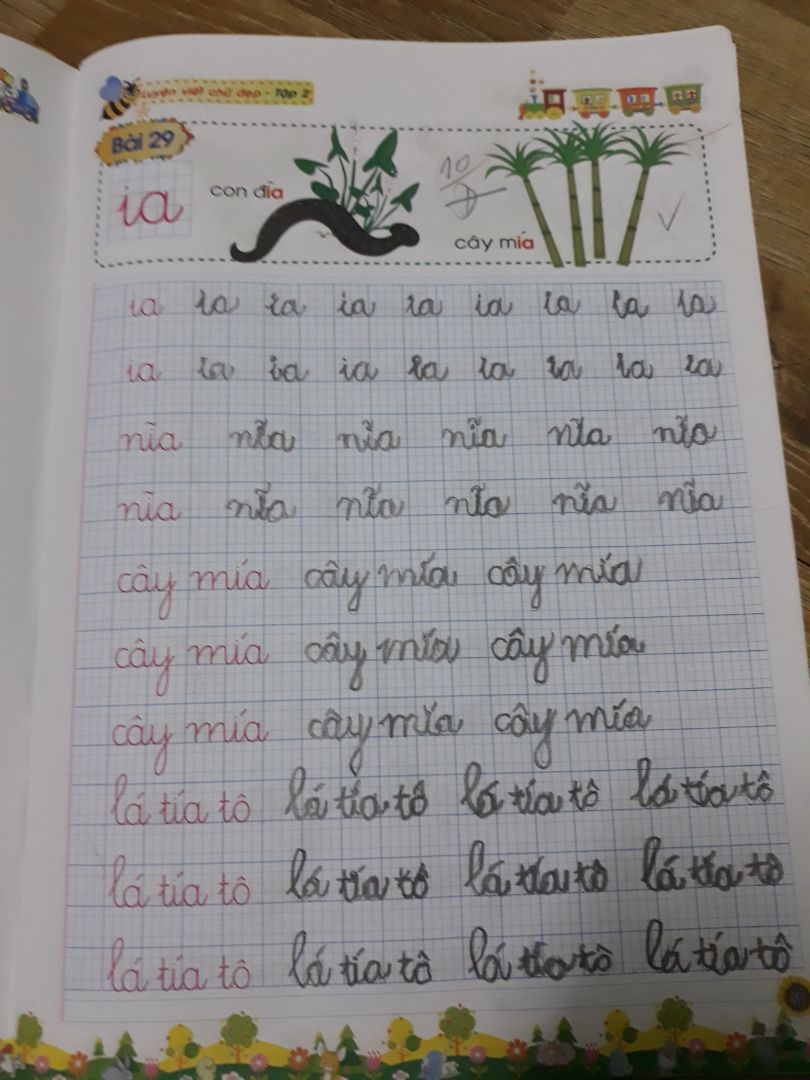 Luyện viết chữ đẹp - Tập 2
Bài 29
ia con đỉa cây mía 10
ia ia ia ia ia ia ia ia ia
ia ia ia ia ia ia ia ia ia
nĩa nĩa nĩa nĩa nĩa nĩa
nĩa nĩa nĩa nĩa nĩa nĩa
cây mía cây mía cây mía
cây mía cây mía cây mía
cây mía cây mía cây mía
lá tía tô lá tía tô lá tía tô lá tía tô
lá tía tô lá tía tô lá tía tô lá tía tô
lá tía tô lá tía tô lá tía tô lá tía tô